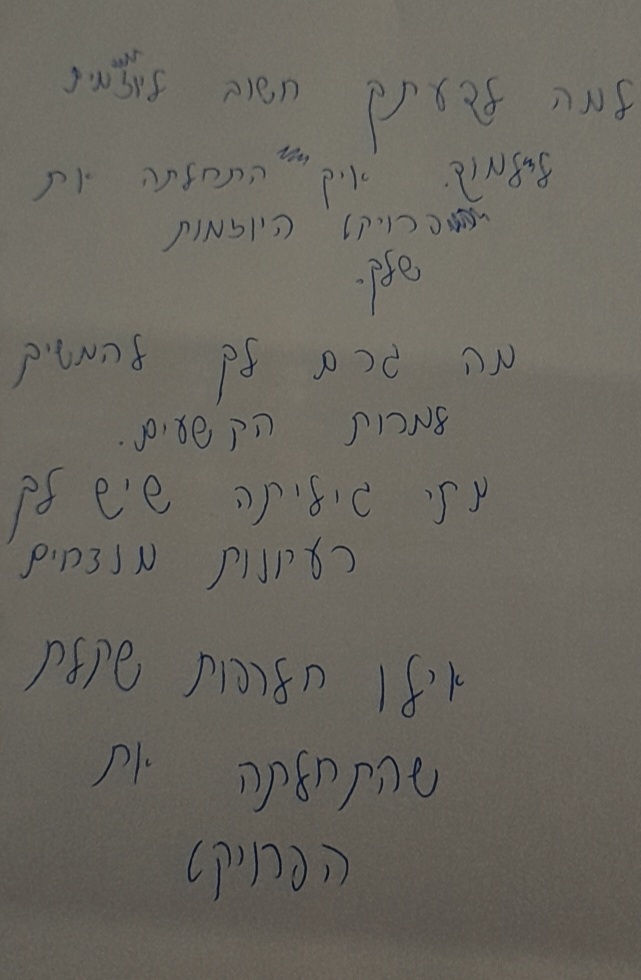 למה לדעתך חשוב ליוזמית
ללמוד. איך התחלתה את
פרויקט היוזמות
שלך.
מה גרם לך להמשיך
למרות הקשעים.
מתי גיליתה שיש לך
רעיונות מנצחים
אילו חלופות שקלת
שהתחלתה את
הפרויקט